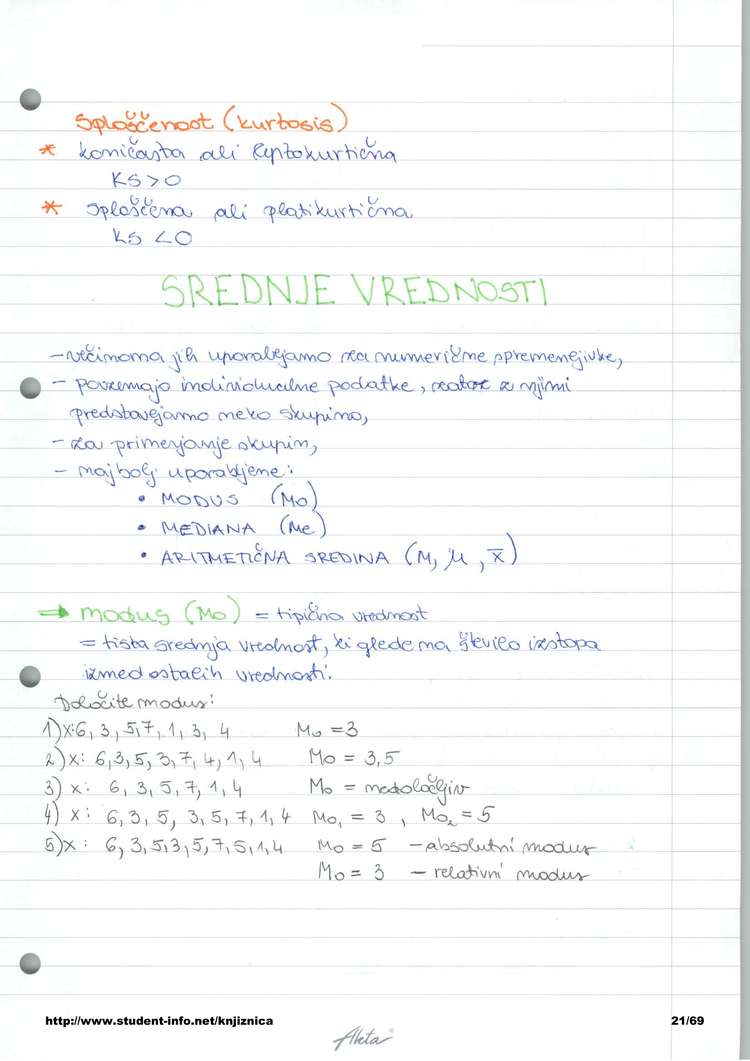 Sploščenost (kurtosis)
* koničasta ali leptokurtična
KS>0
* sploščena ali platikurtična
KS <0
SREDNJE VREDNOSTI
-večinoma jih uporabljamo za numerične spremenljivke,
- povzemajo individualne podatke, zato z njimi
predstavljamo neko skupino,
- za primerjanje skupin,
- najbolj uporabljene:
• MODUS (Mo)
• MEDIANA (Me)
• ARITMETIČNA SREDINA (M, μ, x̄)
→ modus (Mo) = tipična vrednost
= tista srednja vrednost, ki glede na število izstopa
izmed ostalih vrednosti.
Določite modus:
1) x: 6, 3, 5, 7, 1, 3, 4 Mo = 3
2) x: 6, 3, 5, 3, 7, 4, 1, 4 Mo = 3,5
3) x: 6, 3, 5, 7, 1, 4 Mo = nedoločljiv
4) x: 6, 3, 5, 3, 5, 7, 1, 4 Mo₁ = 3 , Mo₂ = 5
5) x: 6, 3, 5, 3, 5, 7, 5, 1, 4 Mo = 5 - absolutni modus
Mo = 3 - relativni modus
http://www.student-info.net/knjiznica 21/69
Aleta